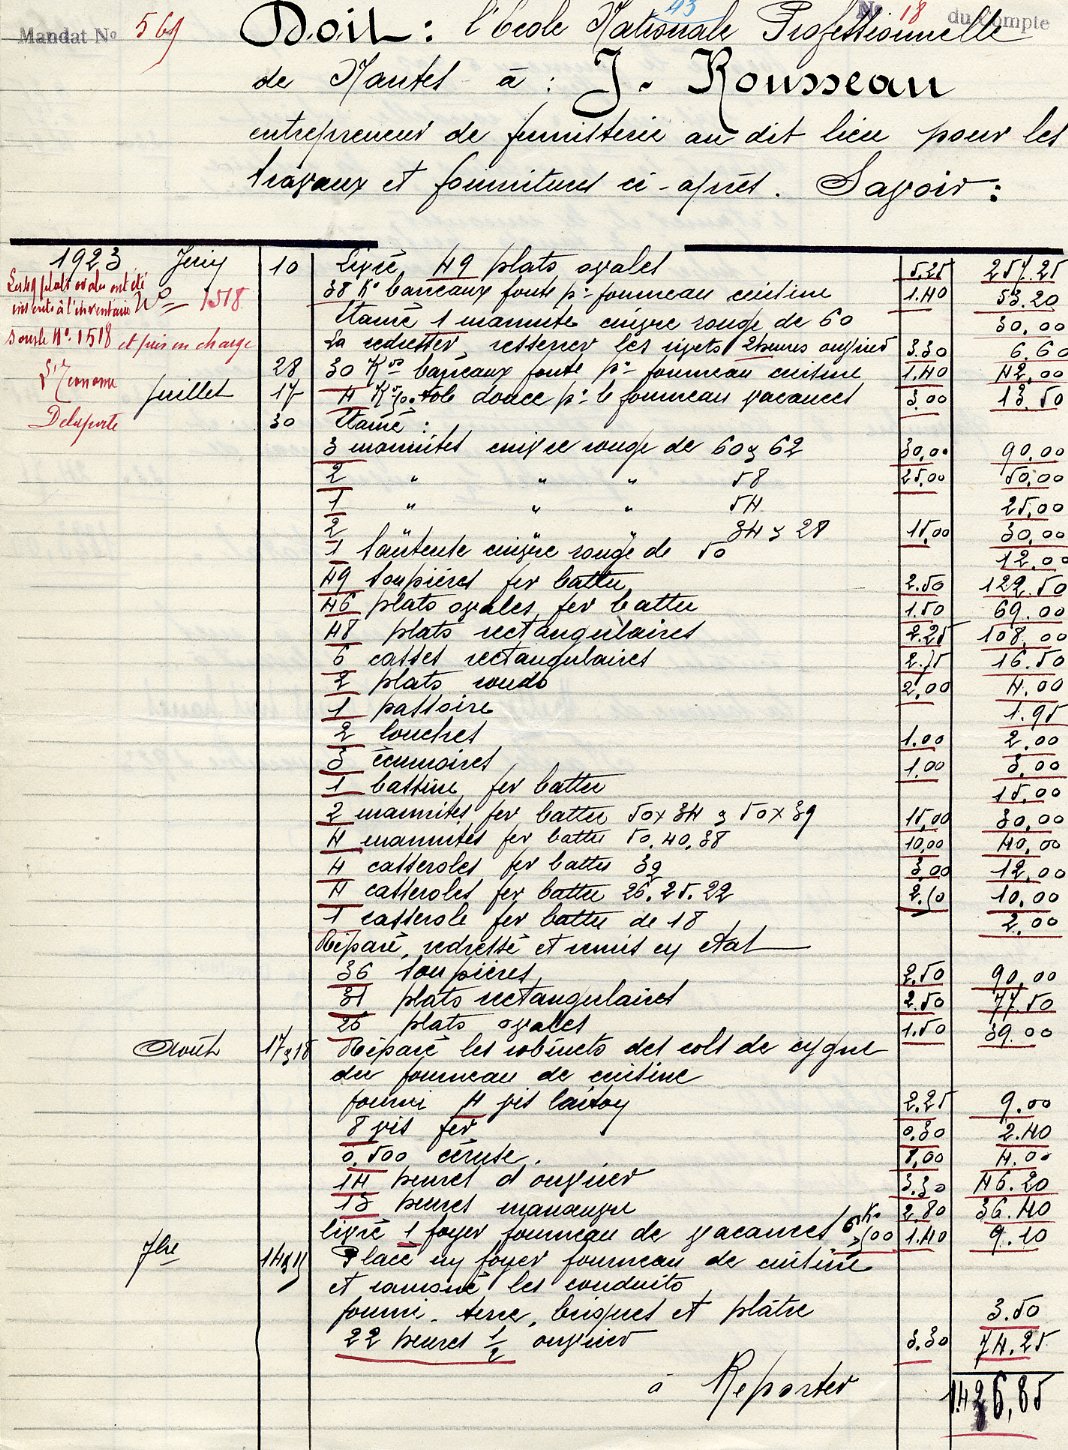 Mandat No 569
43
No 18 du Compte
Doit : l'Ecole Nationale Professionnelle
de Nantes à : J. Rousseau
entrepreneur de fumisterie au dit lieu pour les
travaux et fournitures ci-après. Savoir :
1923 Juin 10 Livré 49 plats ovales 5.25 257.25
Les 49 plats ovales ont été
inscrits à l'inventaire No 1518
sous le No 1518 et pris en charge
L'Econome
Delaporte
38 Ko barreaux fonte pr fourneau cuisine 1.40 53.20
Etamé 1 marmite cuivre rouge de 60 30,00
La redresser, resserrer les rivets 2 heures ouvrier 3.30 6.60
28 30 Kos barreaux fonte pr fourneau cuisine 1.40 42,00
Juillet 17 4 K 500 tole douce pr le fourneau vacances 3,00 13.50
30 Etamé :
3 marmites cuivre rouge de 60 & 62 30,00 90,00
2 " " " 58 25,00 50,00
1 " " " 54 25,00
2 " " " 34 & 28 15,00 30,00
1 sauteuse cuivre rouge de 50 12,00
49 soupières fer battu 2.50 122.50
46 plats ovales fer battu 1.50 69.00
48 plats rectangulaires 2.25 108,00
6 casses rectangulaires 2.75 16.50
2 plats ronds 2,00 4.00
1 passoire 1.95
2 louches 1.00 2.00
3 écumoires 1.00 3,00
1 bassine fer battu 15,00
2 marmites fer battu 50x34 & 50x39 15,00 30,00
4 marmites fer battu 50.40.38 10,00 40,00
4 casseroles fer battu 32 3,00 12,00
4 casseroles fer battu 26.25.22 2.50 10.00
1 casserole fer battu de 18 2,00
Réparé, redressé et remis en état
36 soupières 2.50 90,00
31 plats rectangulaires 2.50 77.50
26 plats ovales 1.50 39.00
Août 17 & 18 Réparé les robinets des cols de cygne
du fourneau de cuisine
fourni 4 vis laiton 2.25 9.00
8 vis fer 0.30 2.40
0,500 céruse. 8,00 4.00
14 heures d'ouvrier 3.30 46.20
13 heures manœuvre 2.80 36.40
livré 1 foyer fourneau de vacances 6 Ko 500 1.40 9.10
7bre 14 & 15 Placé un foyer fourneau de cuisine
et ramoné les conduits
fourni. terre, briques et plâtre 3.50
22 heures 1/2 ouvrier 3.30 74.25
à Reporter 1.426,85